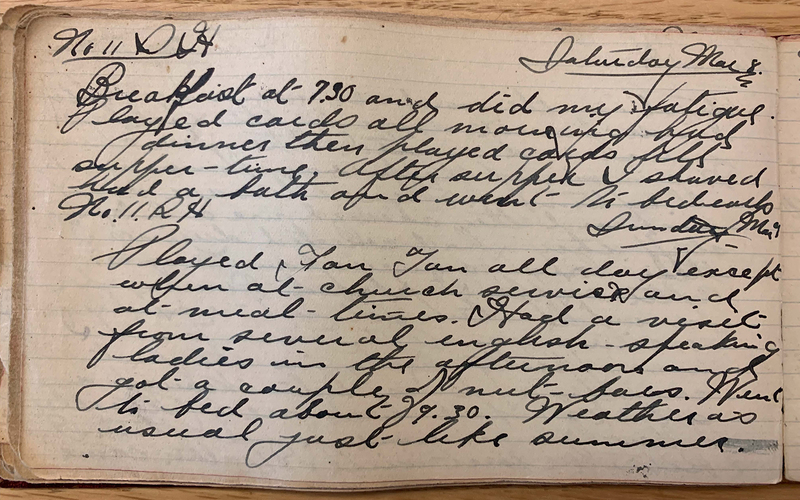 No. 11 D G H Saturday Mar 8.
Breakfast at 7.30 and did my fatigue.
Played cards all morning had
dinner then played cards till
supper-time. After supper I shaved
had a bath and went to bed early
No. 11. G H Sunday Mar 9
Played Fan Tan all day except
when at church service and
at meal-times. Had a visit
from several english-speaking
ladies in the afternoon and
got a couple of nut-bars. Went
to bed about 9.30. Weather as
usual just like summer.